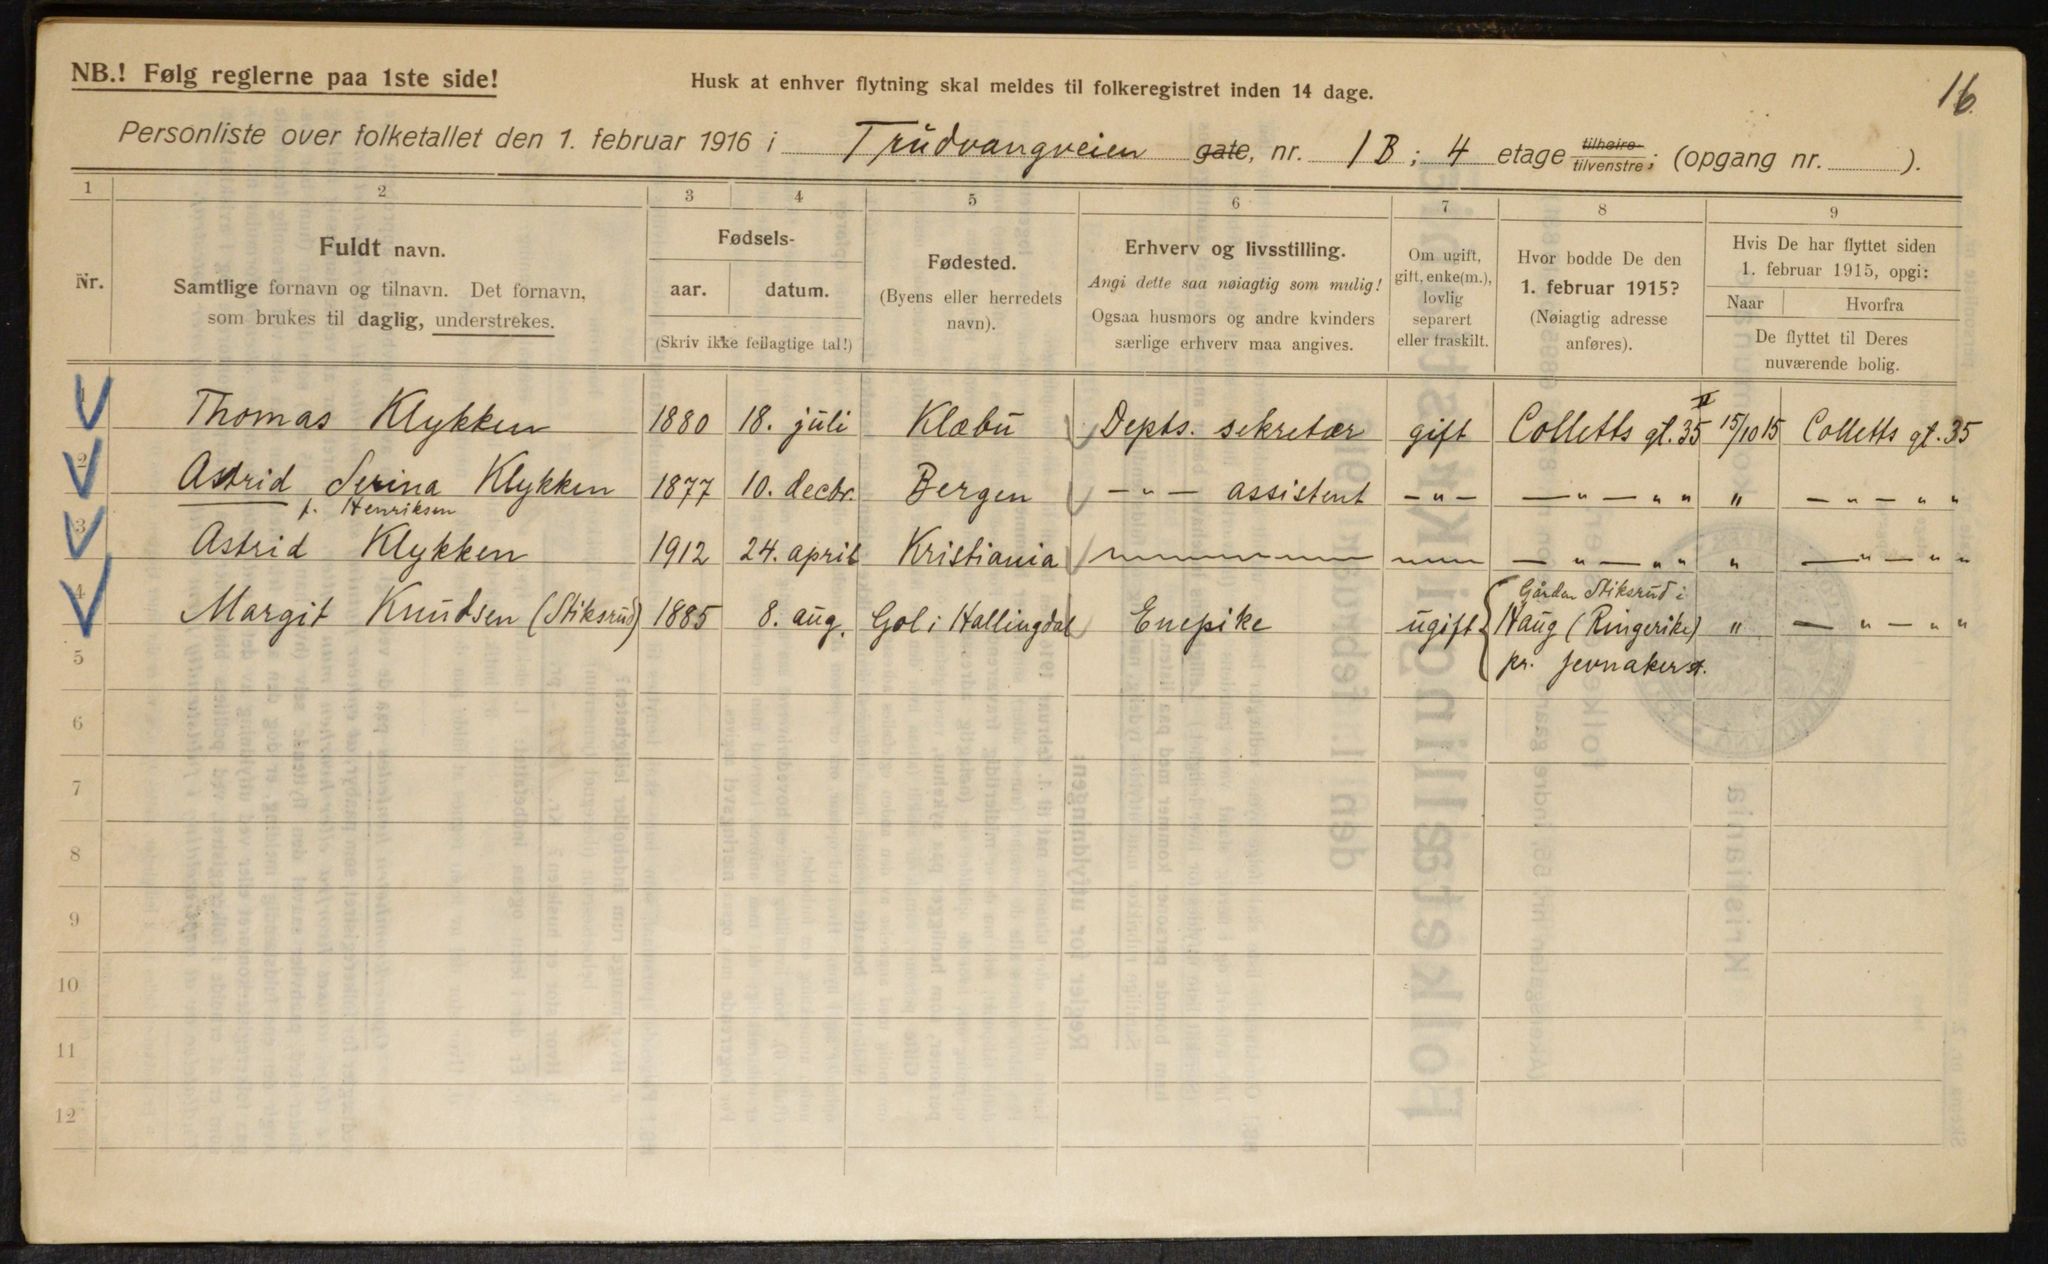 16
NB.! Følg reglerne paa 1ste side!
Husk at enhver flytning skal meldes til folkeregistret inden 14 dage.
Personliste over folketallet den 1. februar 1916 i Trudvangveien gate, nr. 1B; 4 etage tilhøire tilvenstre; (opgang nr. ).
1 2 3 4 5 6 7 8 9
Nr.
Fuldt navn.
Samtlige fornavn og tilnavn. Det fornavn,
som brukes til daglig, understrekes.
Fødsels-
aar. datum.
(Skriv ikke feilagtige tal!)
Fødested.
(Byens eller herredets
navn).
Erhverv og livsstilling.
Angi dette saa nøiagtig som mulig!
Ogsaa husmors og andre kvinders
særlige erhverv maa angives.
Om ugift,
gift, enke(m.),
lovlig
separert
eller fraskilt.
Hvor bodde De den
1. februar 1915?
(Nøiagtig adresse
anføres).
Hvis De har flyttet siden
1. februar 1915, opgi:
Naar Hvorfra
De flyttet til Deres
nuværende bolig.
1 Thomas Klykken 1880 18. juli Klæbu Depts. sekretær gift Colletts gt. 35 II 15/10 15 Colletts gt. 35
2 Astrid Serina Klykken 1877 10. decbr. Bergen —"— assistent —"— —"— " " " —"— " "
f. Henriksen
3 Astrid Klykken 1912 24. april Kristiania —"— " " " —"— " "
4 Margit Knudsen (Stiksrud) 1885 8. aug. Gol i Hallingdal Enepike ugift Gården Stiksrud i
Haug (Ringerike) " —"— " "
pr. Jevnaker st.
5
6
7
8
9
10
11
12